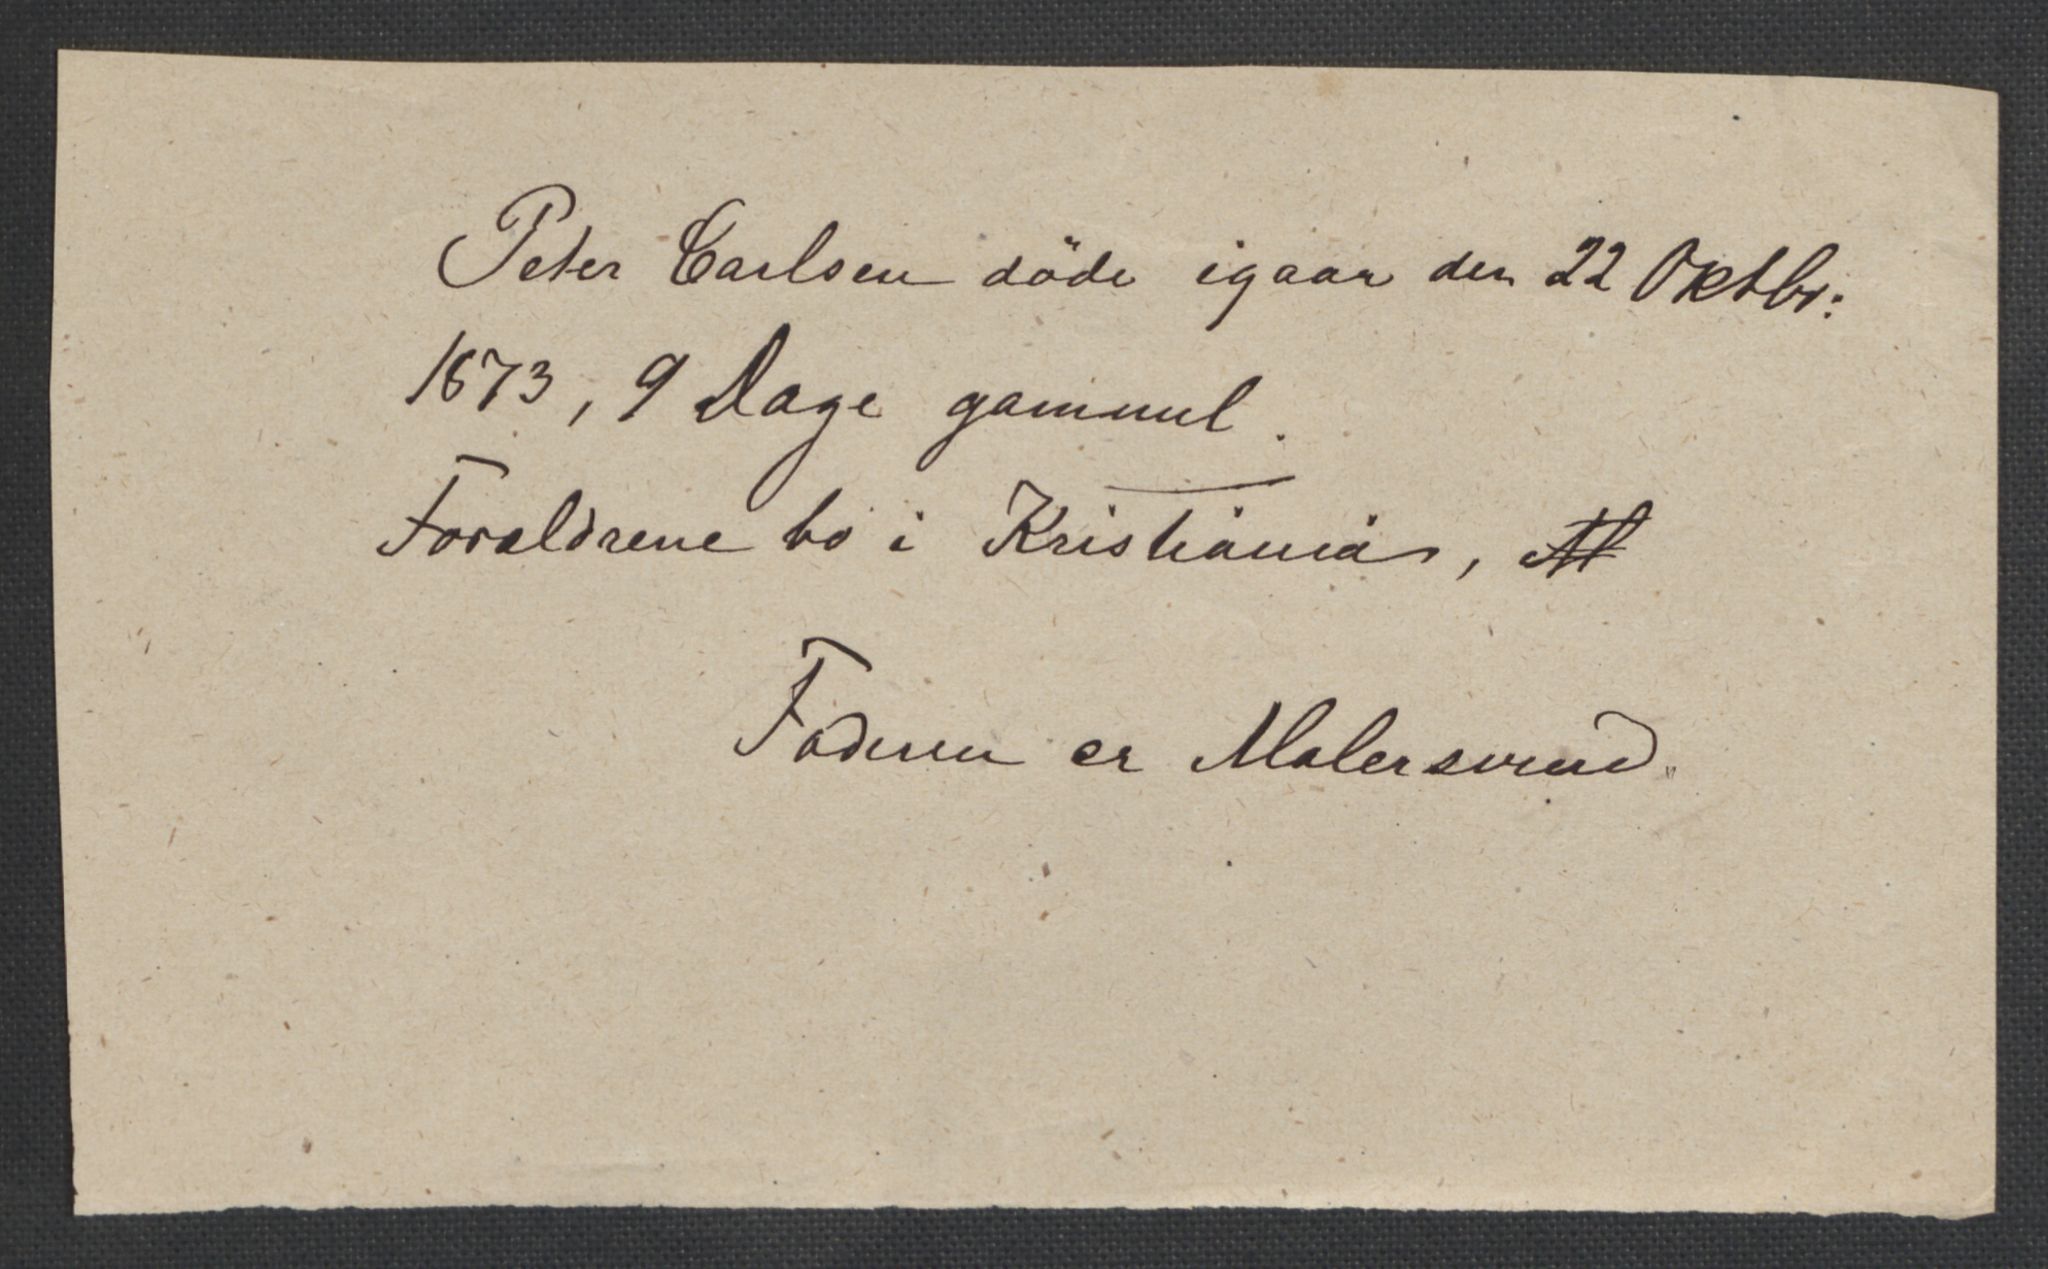 Peter Carlsen döde igaar den 22 Oktbr:
1873, 9 Dage gammel.
Forældrene bo i Kristiania,
Faderen er Malersvend.